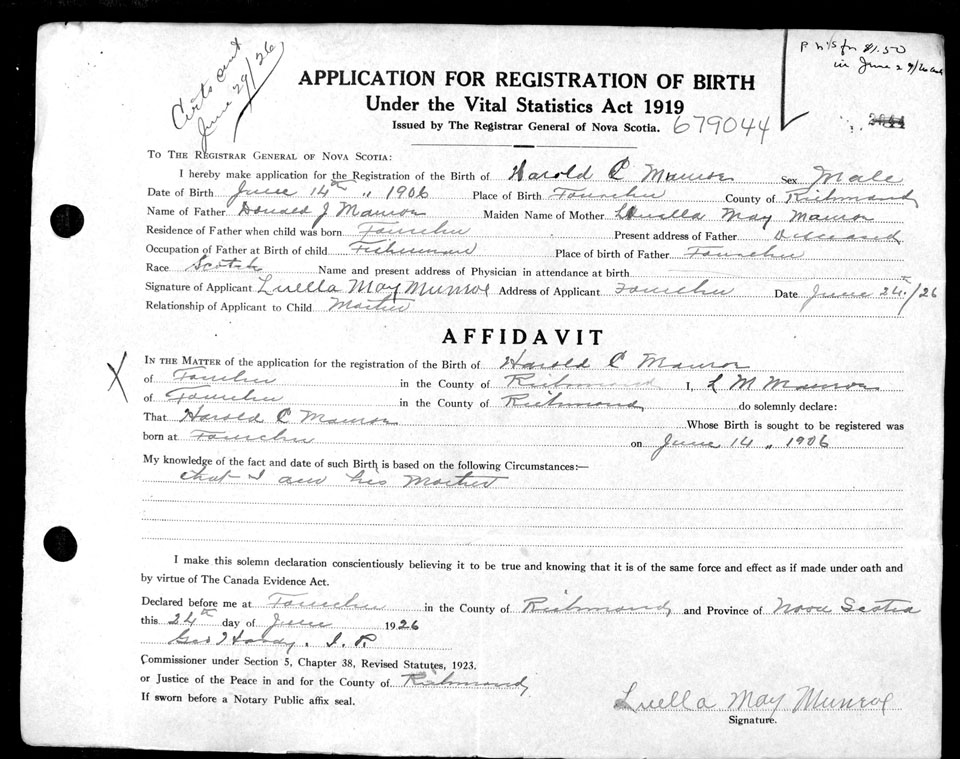 Certs sent
June 29/26
P N's for $1.50
in June 29/26
APPLICATION FOR REGISTRATION OF BIRTH
Under the Vital Statistics Act 1919
Issued by The Registrar General of Nova Scotia. 679044
TO THE REGISTRAR GENERAL OF NOVA SCOTIA:
I hereby make application for the Registration of the Birth of Harold C Munroe Sex Male
Date of Birth June 14th " 1906 Place of Birth Fourchu County of Richmond
Name of Father Donald J Munroe Maiden Name of Mother Luella May Munroe
Residence of Father when child was born Fourchu Present address of Father Diseased
Occupation of Father at Birth of child Fisherman Place of birth of Father Fourchu
Race Scotch Name and present address of Physician in attendance at birth
Signature of Applicant Luella May Munroe Address of Applicant Fourchu Date June 24th/26
Relationship of Applicant to Child Mother
AFFIDAVIT
IN THE MATTER of the application for the registration of the Birth of Harold C Munroe
of Fourchu in the County of Richmond I, L M Munroe
of Fourchu in the County of Richmond do solemnly declare:
That Harold C Munroe Whose Birth is sought to be registered was
born at Fourchu on June 14 " 1906
My knowledge of the fact and date of such Birth is based on the following Circumstances:—
that I am his Mother
I make this solemn declaration conscientiously believing it to be true and knowing that it is of the same force and effect as if made under oath and
by virtue of The Canada Evidence Act.
Declared before me at Fourchu in the County of Richmond and Province of Nova Scotia
this 24th day of June 1926
Geo Hardy. J. P.
Commissioner under Section 5, Chapter 38, Revised Statutes, 1923.
or Justice of the Peace in and for the County of Richmond
If sworn before a Notary Public affix seal.
Luella May Munroe
Signature.